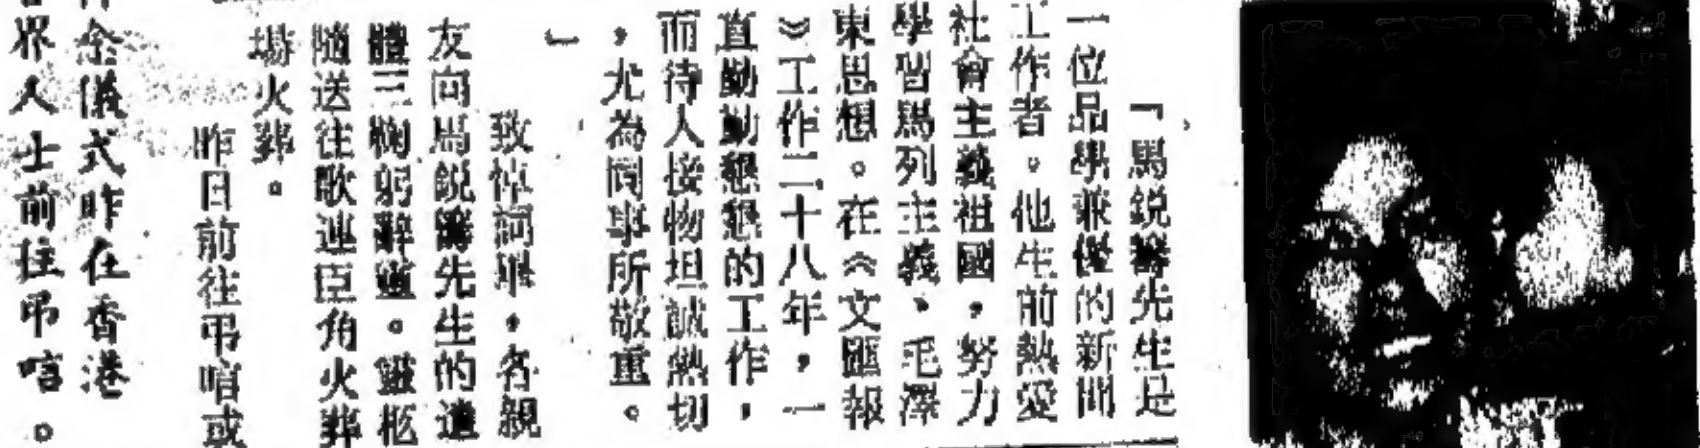 「馬銳籌先生是
一位品學兼優的新聞
工作者。他生前熱愛
社會主義祖國，努力
學習馬列主義、毛澤
東思想。在《文匯報
》工作二十八年，一
直勤勤懇懇的工作，
而待人接物坦誠熱切
，尤為同事所敬重。
」
致悼詞畢，各親
友向馬銳籌先生的遺
體三鞠躬辭靈。靈柩
隨送往歌連臣角火葬
場火葬。
昨日前往弔唁或
念儀式昨在香港
界人士前往弔唁。